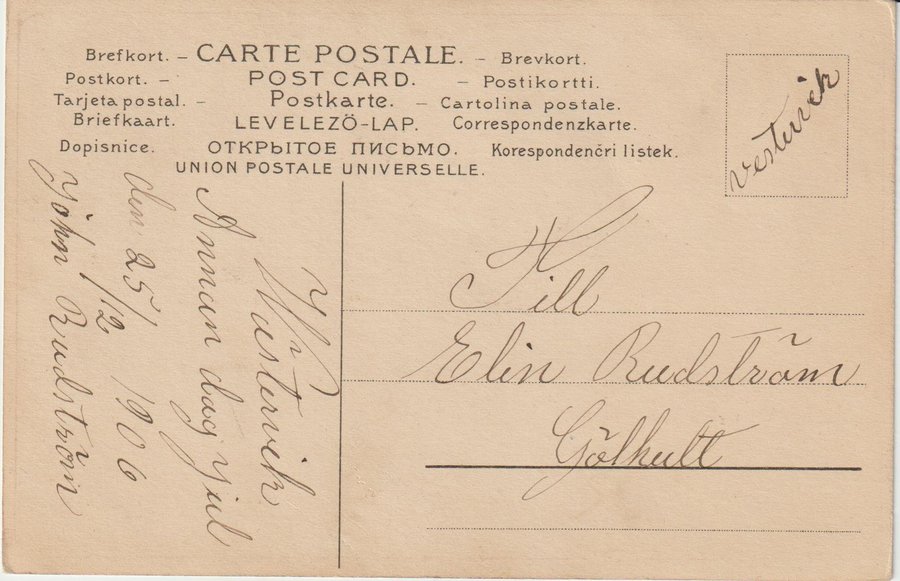 Brefkort. – CARTE POSTALE. – Brevkort.
Postkort. – POST CARD. – Postikortti.
Tarjeta postal. – Postkarte. – Cartolina postale.
Briefkaart. LEVELEZÖ-LAP. Correspondenzkarte.
Dopisnice. ОТКРЫТОЕ ПИСЬМО. Korespondenčri listek.
UNION POSTALE UNIVERSELLE.
Vestervik
Västervik
Annan dag Jul
den 25/12 1906
John Rudström
Till
Elin Rudström
Gölhult